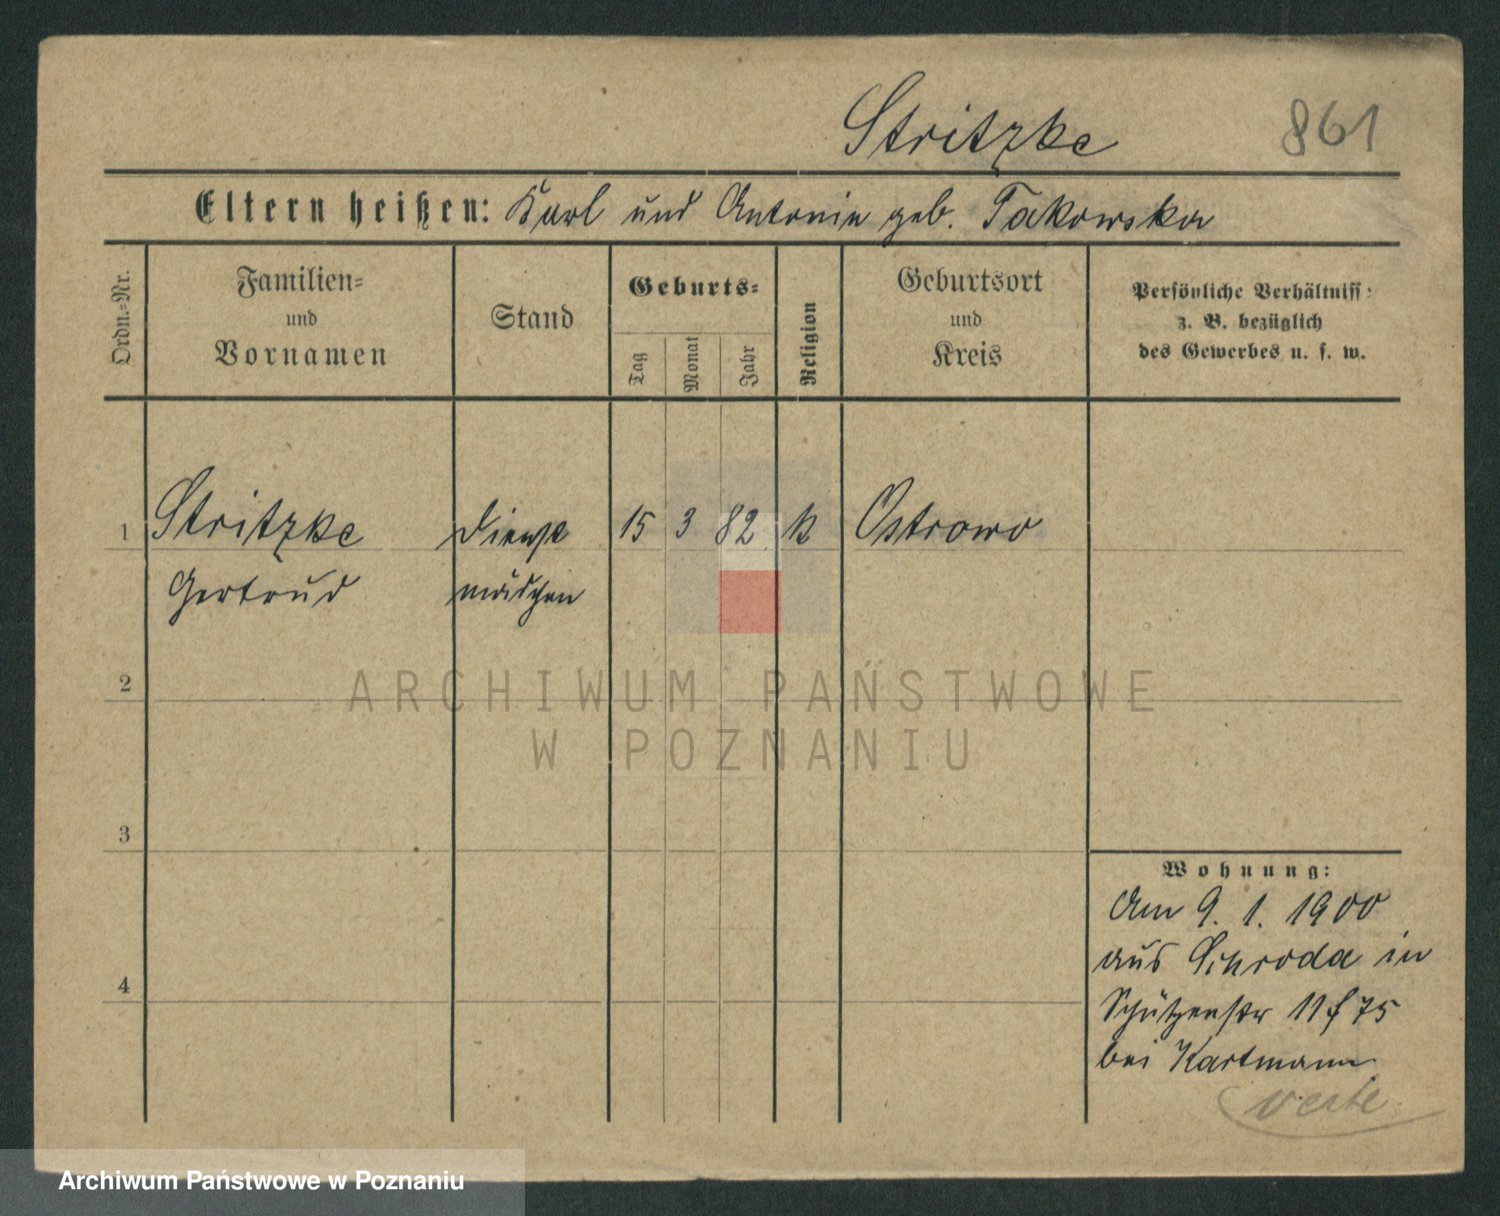 Stritzke 861
Eltern heißen: Karl und Antonie geb. Takowska
Ordn.=Nr.
Familien=
und
Vornamen
Stand
Geburts=
Tag
Monat
Jahr
Religion
Geburtsort
und
Kreis
Persönliche Verhältniss
z. B. bezüglich
des Gewerbes u. s. w.
1 Stritzke Dienst 15 3 82 k Ostrowo
Gertrud mädchen
2
3
4
Wohnung:
Am 9. 1. 1900
aus Schroda in
Schützenstr 11 f 75
bei Kartmann
verte
ARCHIWUM PAŃSTWOWE
W POZNANIU
Archiwum Państwowe w Poznaniu